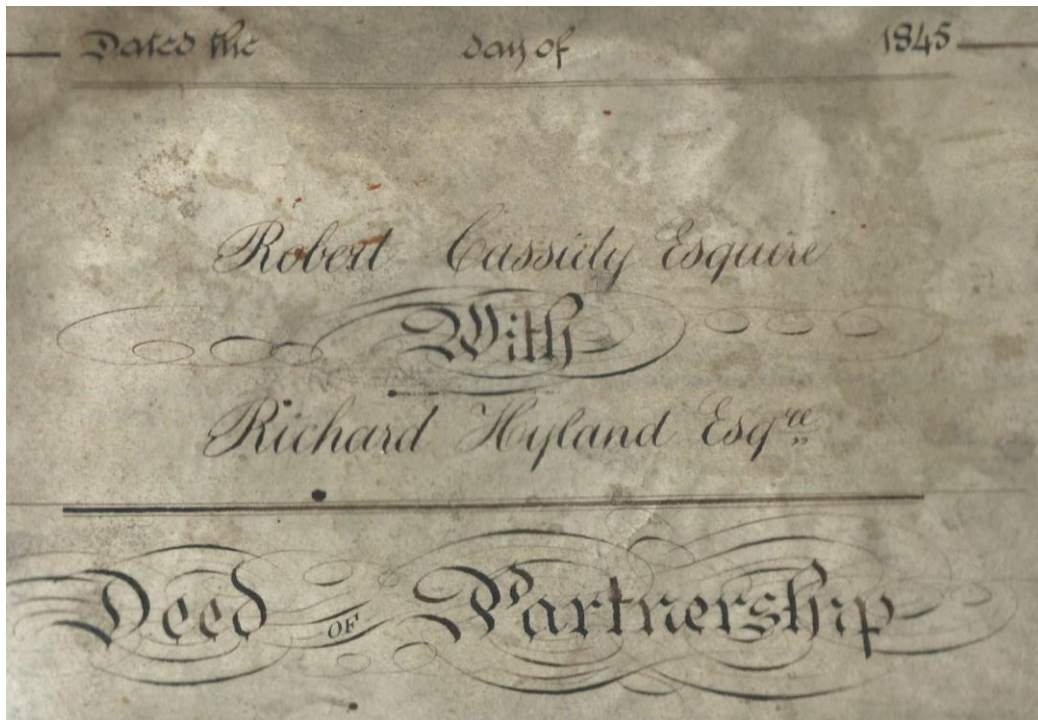 Dated the day of 1845
Robert Cassidy Esquire
With
Richard Hyland Esqre
Deed OF Partnership